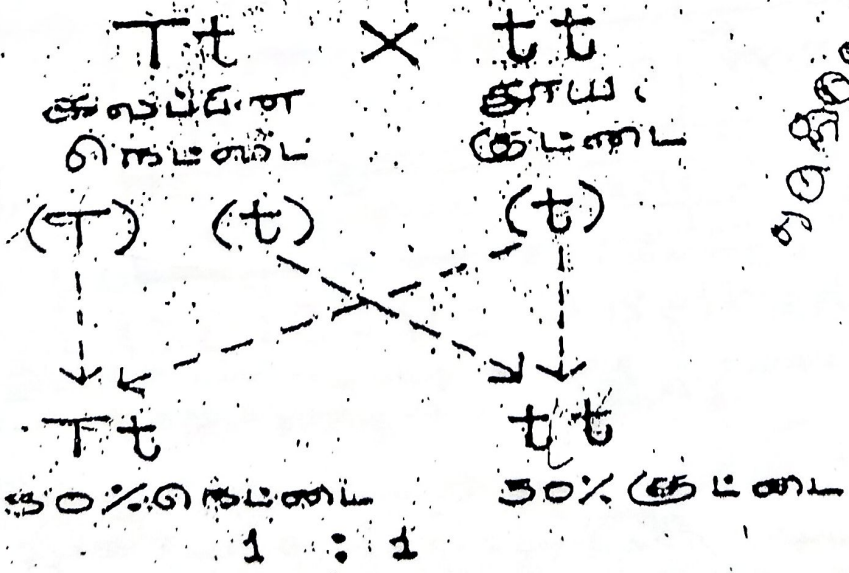 Tt × tt
கலப்பின தூய
நெட்டை குட்டை
(T) (t) (t)
Tt tt
50% நெட்டை 50% குட்டை
1 : 1